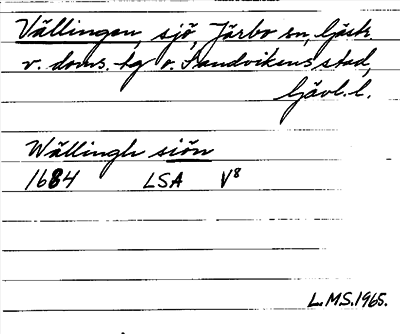 Vällingen, sjö, Järbo sn, Gästr.
v. doms. tg o. Sandvikens stad,
Gävl. l.
Wällingh siön
1684 LSA V8
L.M.S. 1965.